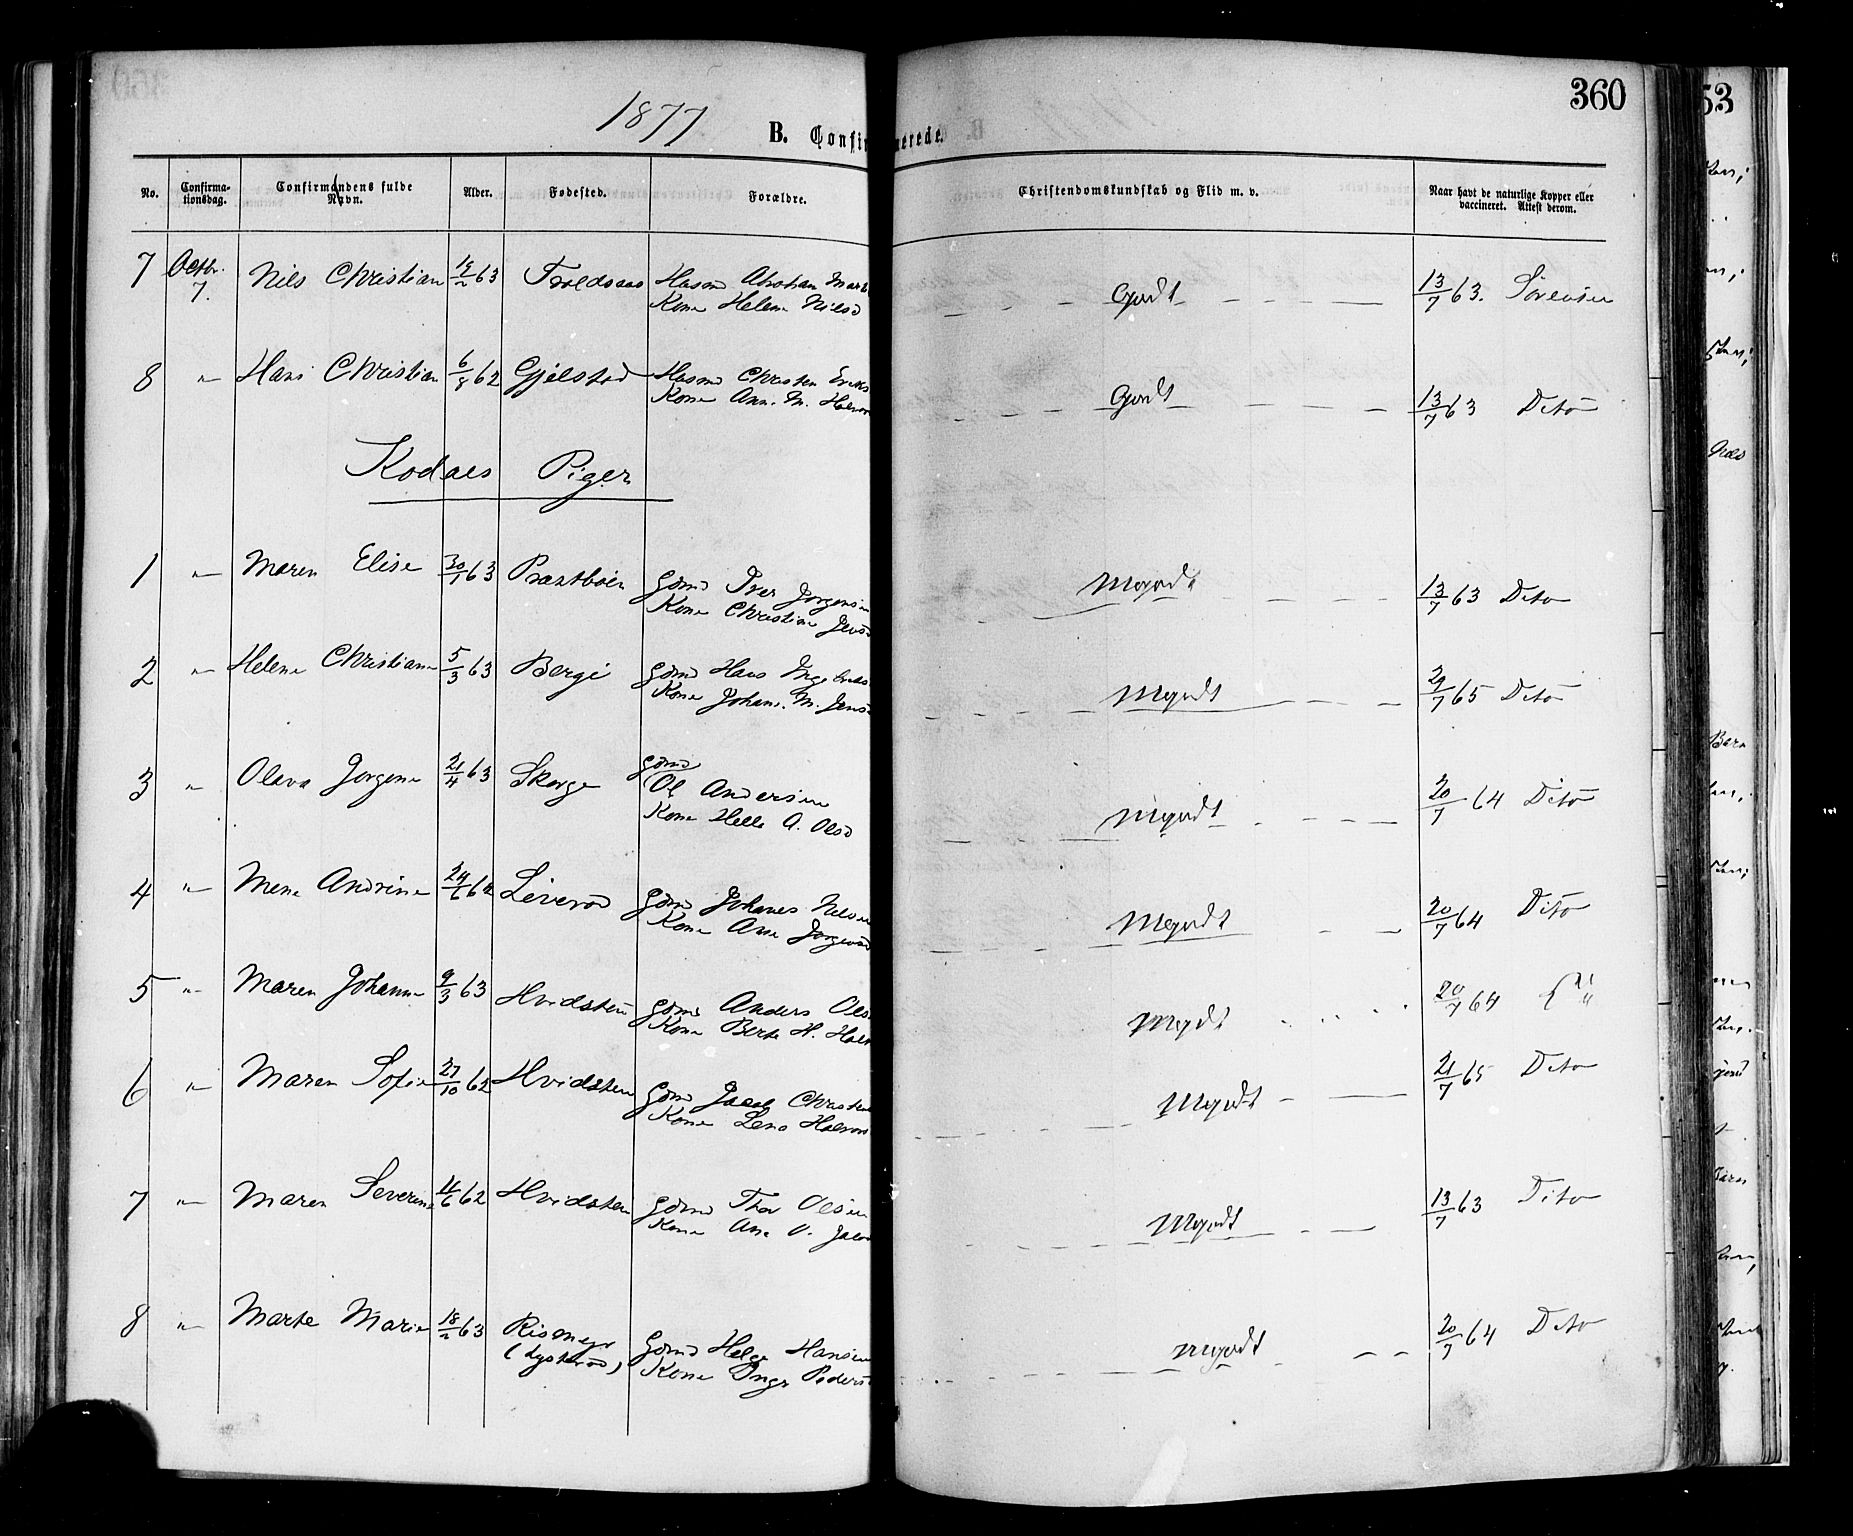 360
1877
B. Confirmerede.
No. Confirma-tionsdag. Confirmandens fulde Navn. Alder. Fødested. Forældre. Christendomskundskab og Flid m. v. Naar havt de naturlige Kopper eller vaccineret. Attest derom.
7 Octbr. 7. Nils Christian 63 Troldsaas Husmd Abraham
Kone Helene Nilsd Godt 13/7 63. Sørensen
8 " Hans Christian 6/8 62 Gjelstad Husmd Christen Eriks
Kone Ann. M. Halvor Godt 13/7 63 Dito
Kodaes Piger
1 " Maren Elise 30/1 63 Præstbøen Gdmd Iver Jørgensen
Kone Christian Jensd Mgodt 13/7 63 Dito
2 " Helene Christiane 5/3 63 Berge Gdmd Hans
Kone Johan. M. Jens Mgodt 29/7 65 Dito
3 " Oleva Jorgine 21/4 63 Skorge Gdmd
Ol Andersen
Kone Helle A. Olsd Mgodt 20/7 64 Dito
4 " Mene Andrine 24/6 62 Liverød Gdmd Johanes Nilsen
Kone Ane Jorgensd Mgodt 20/7 64 Dito
5 " Maren Johanne 9/3 63 Hvidsten Gdmd Anders Ols
Kone Berte H. Mgdt 20/7 64 "
6 " Maren Sofie 27/10 62 Hvidsten Gdmd Jacob Christen
Kone Lena Halvors Mgodt 21/7 65 Dito
7 " Maren Severine 62 Hvidsten Gdmd Thor Olsen
Kone Ane O. Jacob Mgodt 13/7 63 Dito
8 " Marte Marie 18/2 63 Rismyr
(Lysterød) Gdmd Helge Hansen
Kone Inger Peders Mgodt 20/7 64 Dito
53